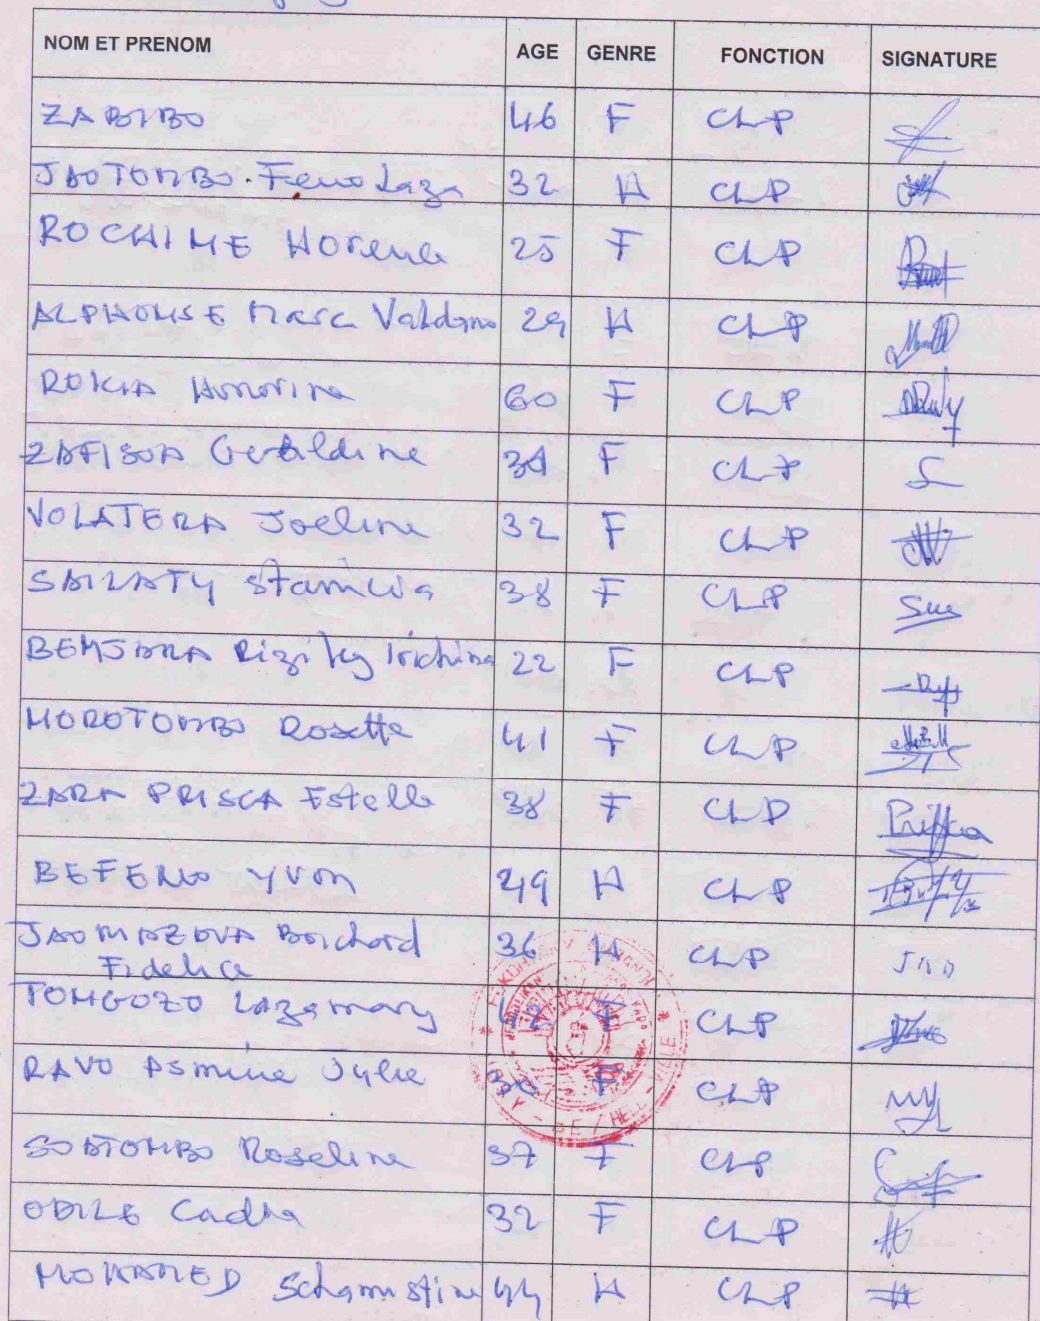 NOM ET PRENOM AGE GENRE FONCTION SIGNATURE
ZABIBO 46 F CLP
JAOTOMBO Feno Laza 32 H CLP
ROCHIME Horene 25 F CLP
ALPHONSE Marc Valdano 29 H CLP
ROKIA Honorine 60 F CLP
ZAFISOA Geraldine 34 F CLP
VOLATERA Joeline 32 F CLP
SAILATY Stanicia 38 F CLP
BEMJARA Riziky 22 F CLP
MOROTOMBO Rosette 41 F CLP
ZARA PRISCA Estelle 38 F CLP
BEFENO YVON 49 H CLP
JAOMAZAVA Borchard 36 H CLP
Fidelice
TONGOZO Lazamary 42 F CLP
RAVO Asmine Julie 30 F CLP
SOATOMBO Roseline 37 F CLP
ODILE Cadia 32 F CLP
MOHAMED Schamstine 44 H CLP